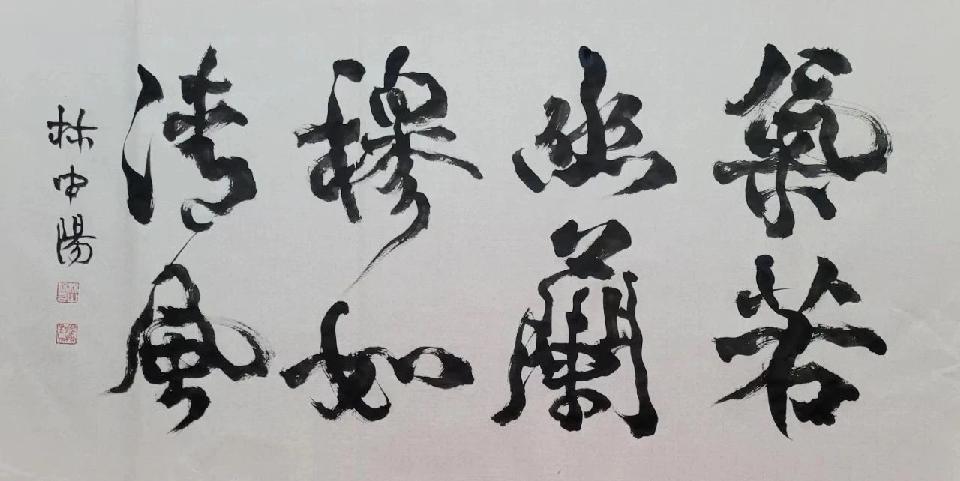 氣若
幽蘭
穆如
清風
林中陽